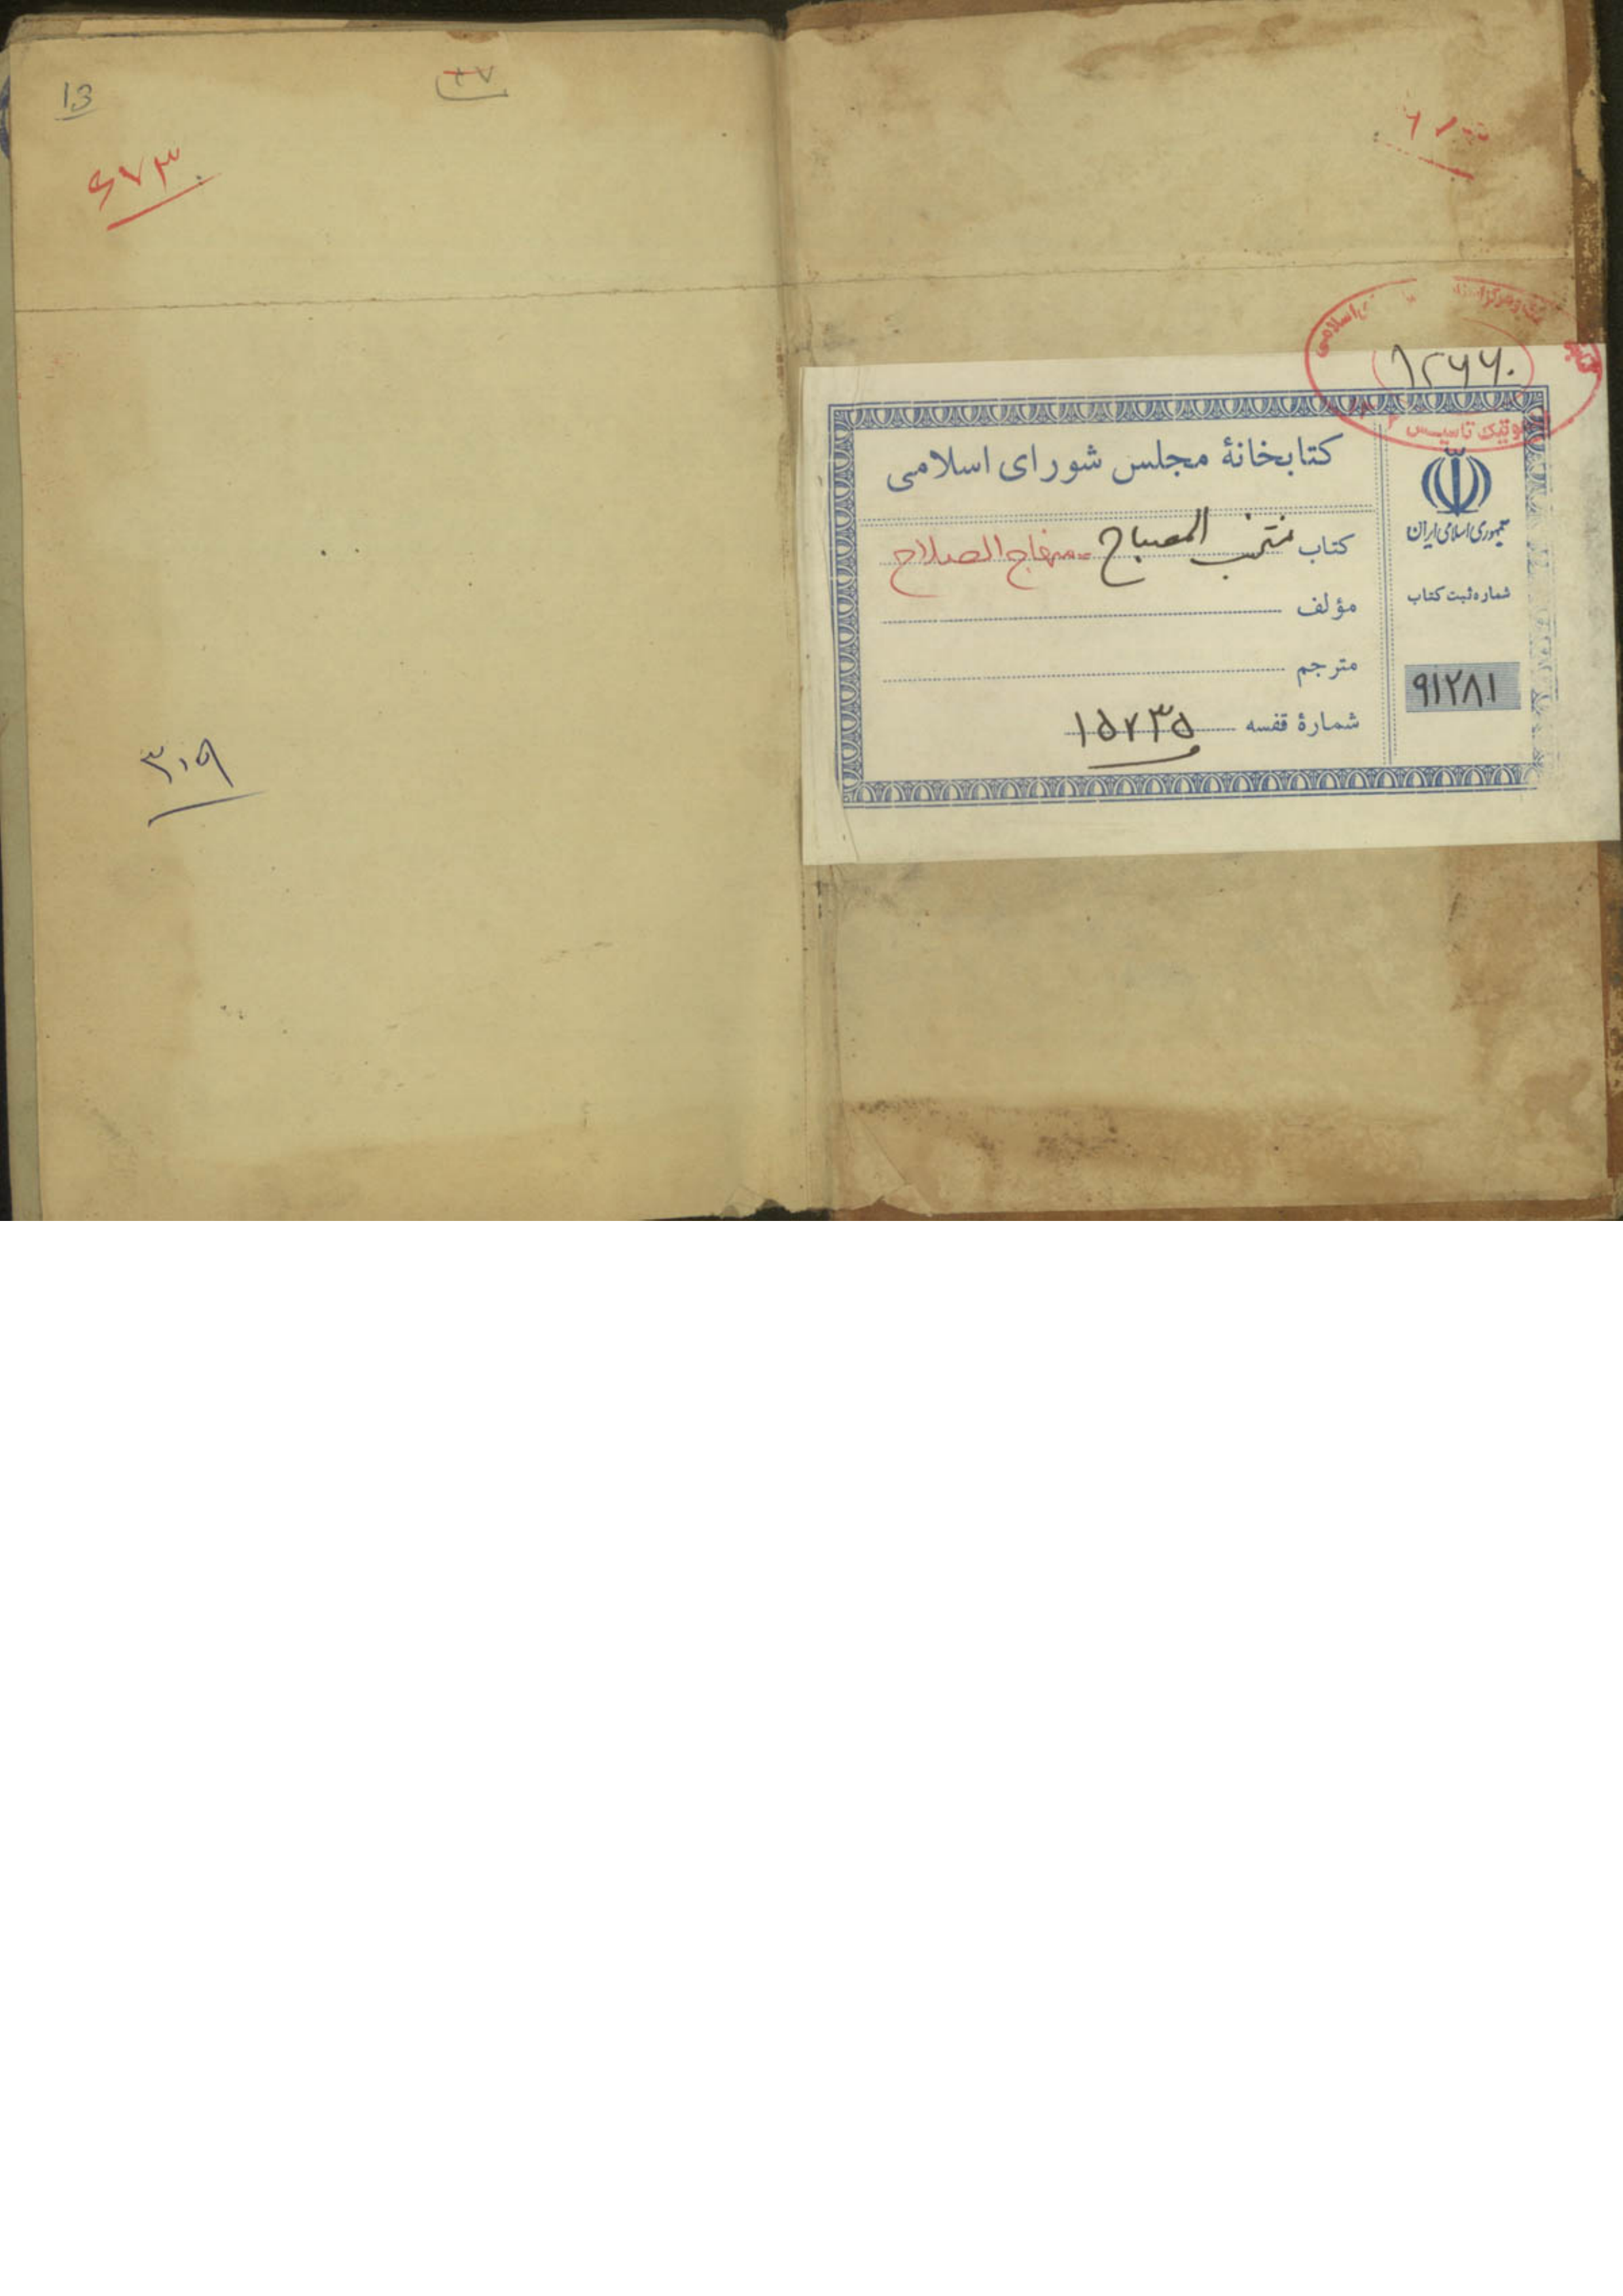 کتابخانهٔ مجلس شورای اسلامی
کتاب منتخب المصباح = منهاج الصلاح
مؤلف
مترجم
شمارهٔ قفسه ۱۵۷۳۵
جمهوری اسلامی ایران
شماره ثبت کتاب
۹۱۲۸۱
اسلامی
تاسیس
۲۷
13
۶۷۳